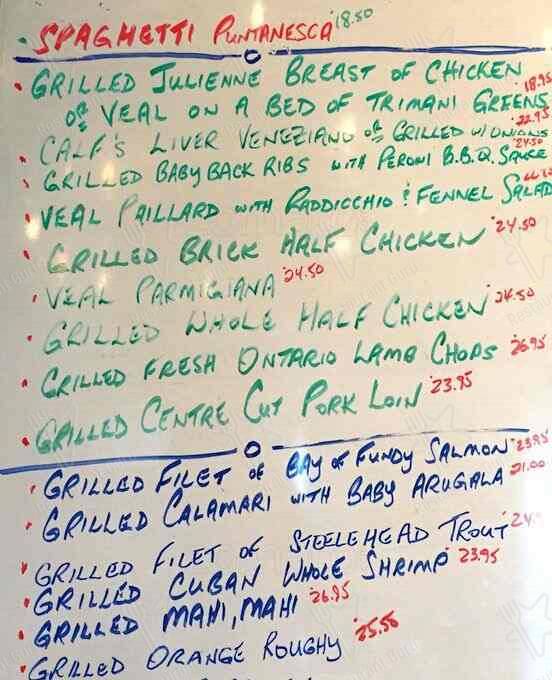 SPAGHETTI PUNTANESCA 18.50
GRILLED JULIENNE BREAST OF CHICKEN
OR VEAL ON A BED OF TRIMANI GREENS 18.95
CALF'S LIVER VENEZIANO OR GRILLED W/ONIONS 22.95
GRILLED BABY BACK RIBS WITH PERONI B.B.Q. SAUCE 24.50
VEAL PAILLARD WITH RADDICCHIO & FENNEL SALAD
GRILLED BRICK HALF CHICKEN 24.50
VEAL PARMIGIANA 24.50
GRILLED WHOLE HALF CHICKEN 24.50
GRILLED FRESH ONTARIO LAMB CHOPS 26.95
GRILLED CENTRE CUT PORK LOIN 23.95
GRILLED FILET OF BAY OF FUNDY SALMON 23.95
GRILLED CALAMARI WITH BABY ARUGALA 21.00
GRILLED FILET OF STEELEHEAD TROUT 24.
GRILLED CUBAN WHOLE SHRIMP 23.95
GRILLED MAHI, MAHI 26.95
GRILLED ORANGE ROUGHY 25.50